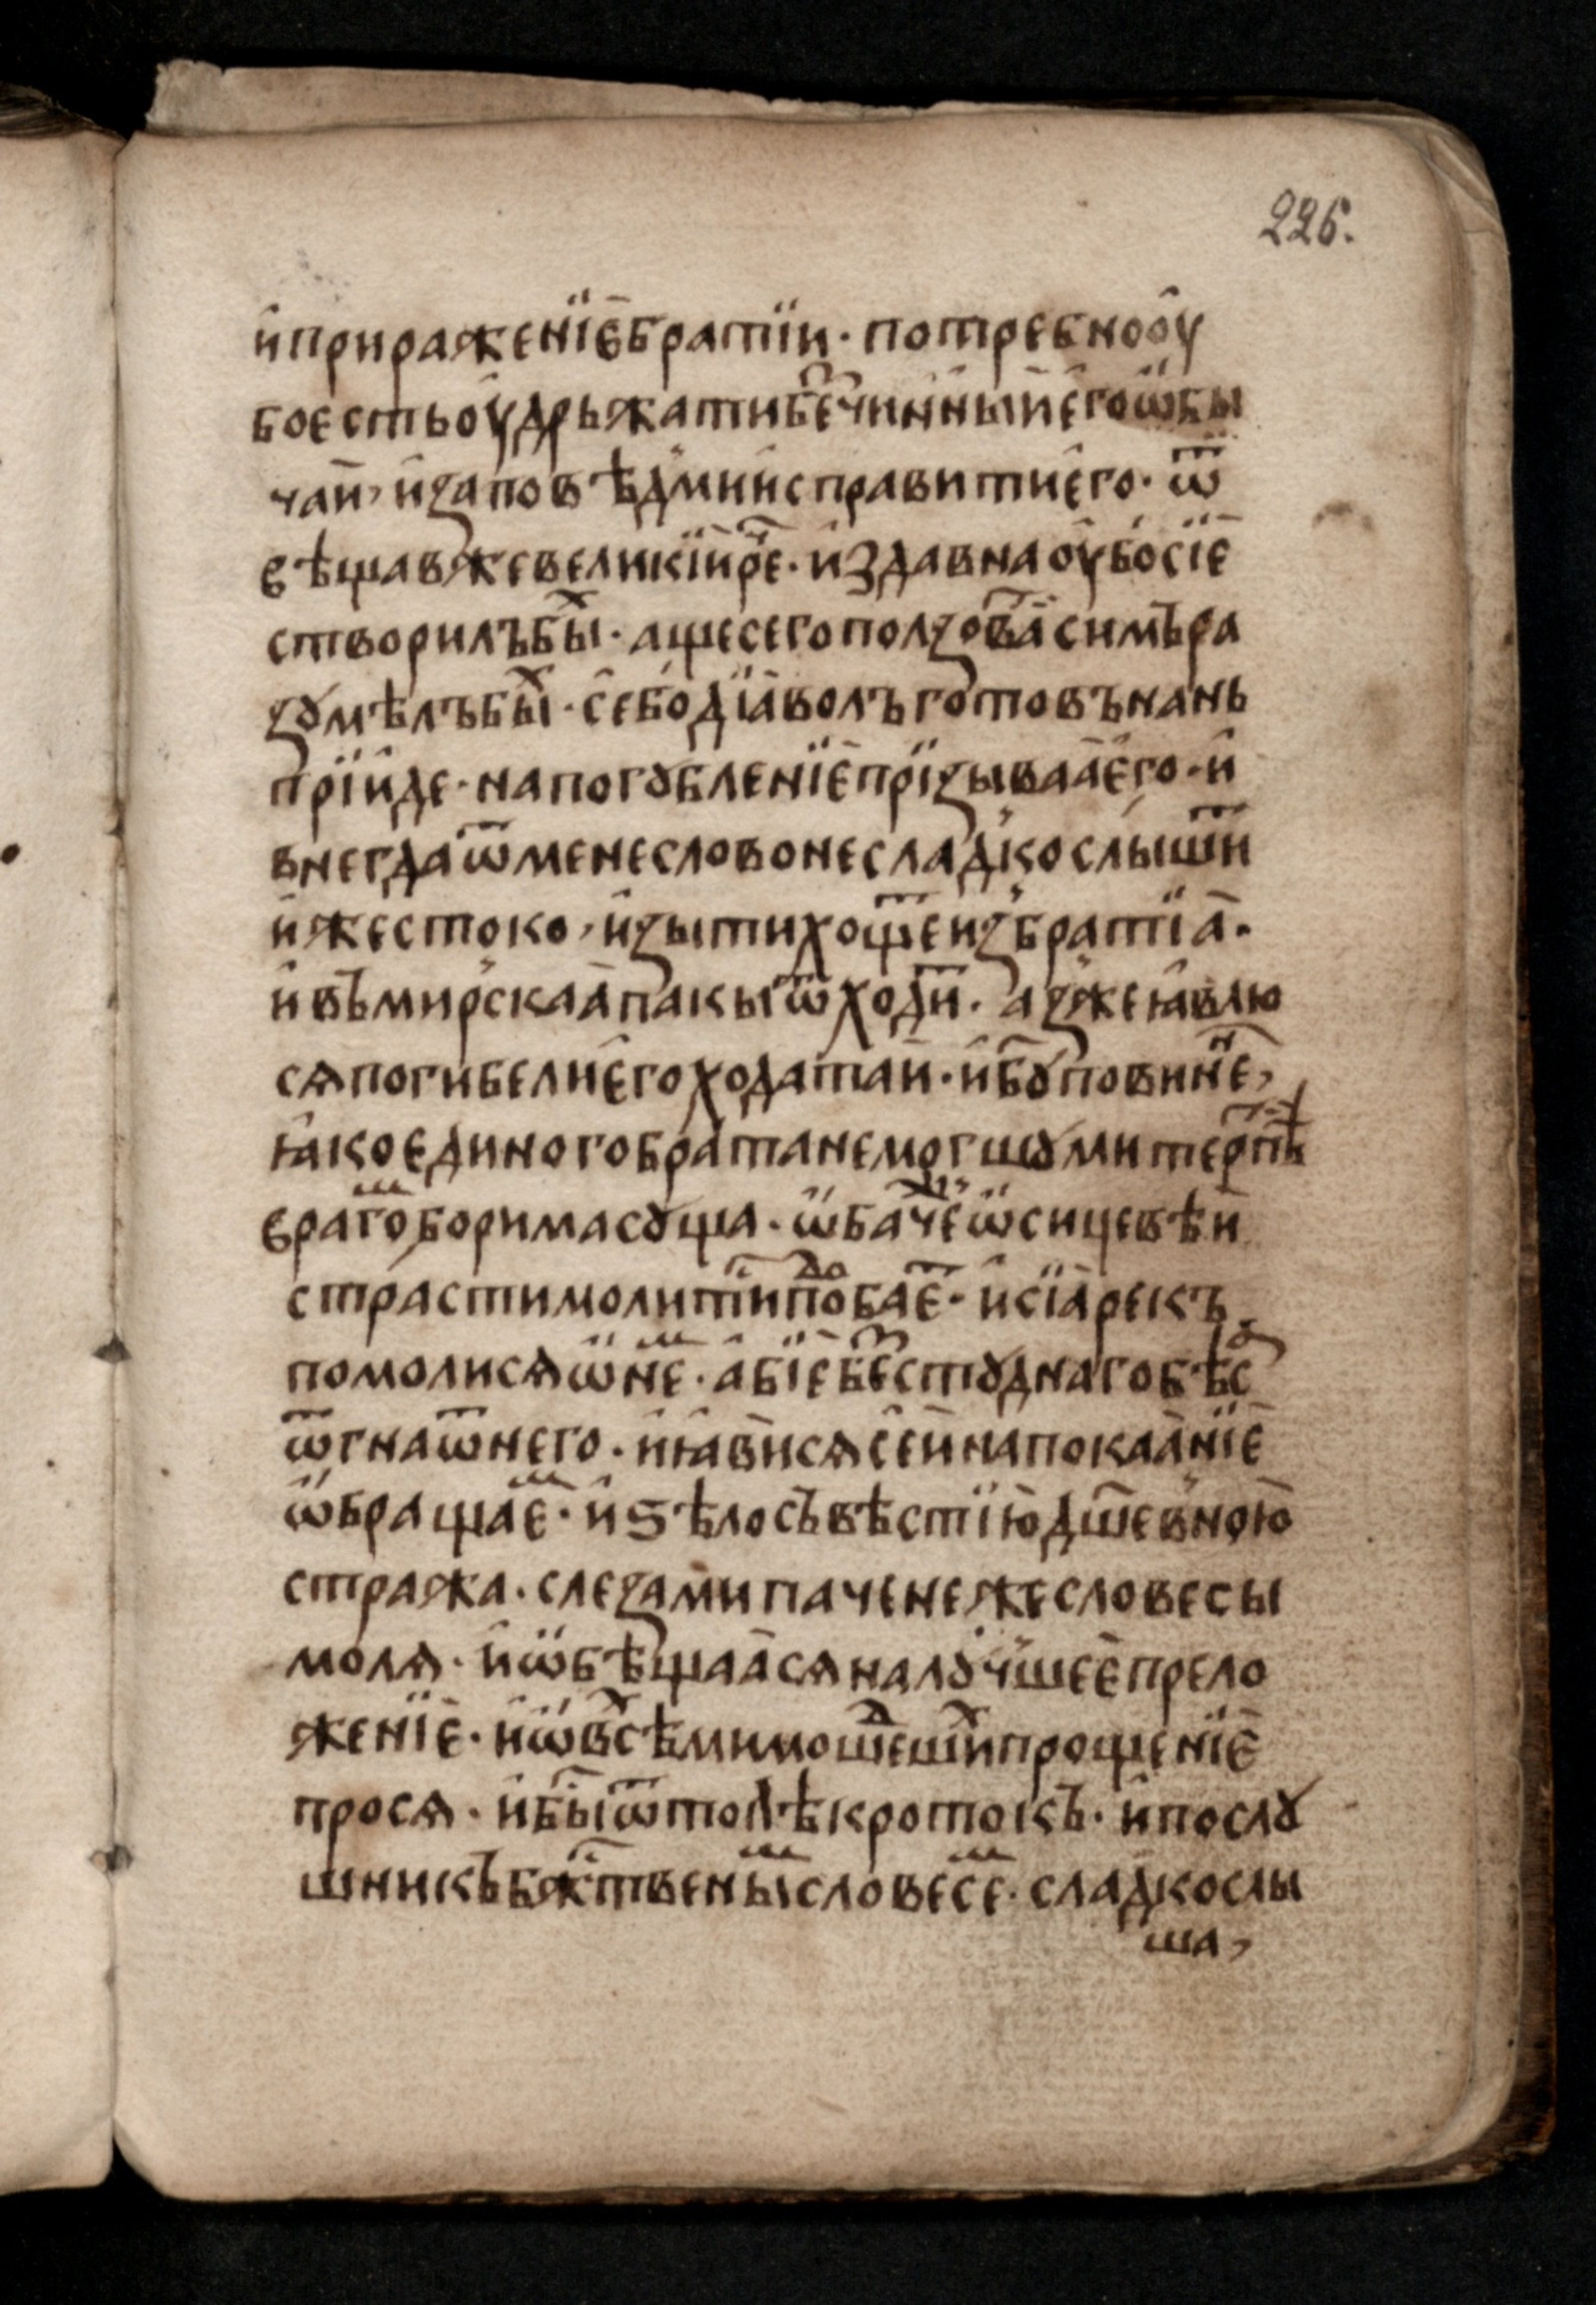 226.
и҆прираженїе҆братїи · потребно оу
бо есть оу҆дрьжати беⷥчинныи е҆го ѡ҆бы
чаи, и҆ заповѣдми и҆справити е҆го · ѿ
вѣщав же великїи реⷱ · и҆здавна оу҆бо сїе
створилъ быⷯ · аще сего ползоваⷮ симъ ра
зꙋмѣлъ быⷯ · се бо дїаволъ готовъ на нь
прїиде · на погꙋбленїе прїзываа е҆го · и҆
внегда ѿ мене слово не сладко слышиⷮ
и҆ жестоко, и҆зыти хощеⷮ и҆з братїа ·
и҆ въ мирскаа пакы ѿходиⷮ · аз же ꙗ҆влю
сѧ погибели е҆го ходатаи · и҆ бꙋⷣ повиннеⷩ,
ꙗ҆ко единого брата не могшꙋ ми терпѣⷮ
врагоⷨ борима сꙋща · ѡ҆баче ѡ҆ сицевѣи
страсти молитиⷭ поⷣбаеⷮ · и҆ сїа рекъ
помолисѧ ѡ҆ неⷨ · а҆бїе беⷥстꙋднаго бѣса
ѿгна ѿ него · и҆ ꙗ҆висѧ сеи на покаанїе
ѡ҆бращаеⷨ · и҆ ѕѣло съвѣстїю дш҃евною
стража · слезами паче неже словесы
молѧ · и҆ ѡ҆бѣщаасѧ на лꙋчшее прело
женїе · и҆ ѡ҆ всѣⷯ мимошеⷣшиⷯ прощенїе
просѧ · и҆ быⷭ ѿтолѣ кротокъ · и҆ послꙋ
шникъ бжⷭтвеныⷨ словесеⷨ · сладко слы
ша,